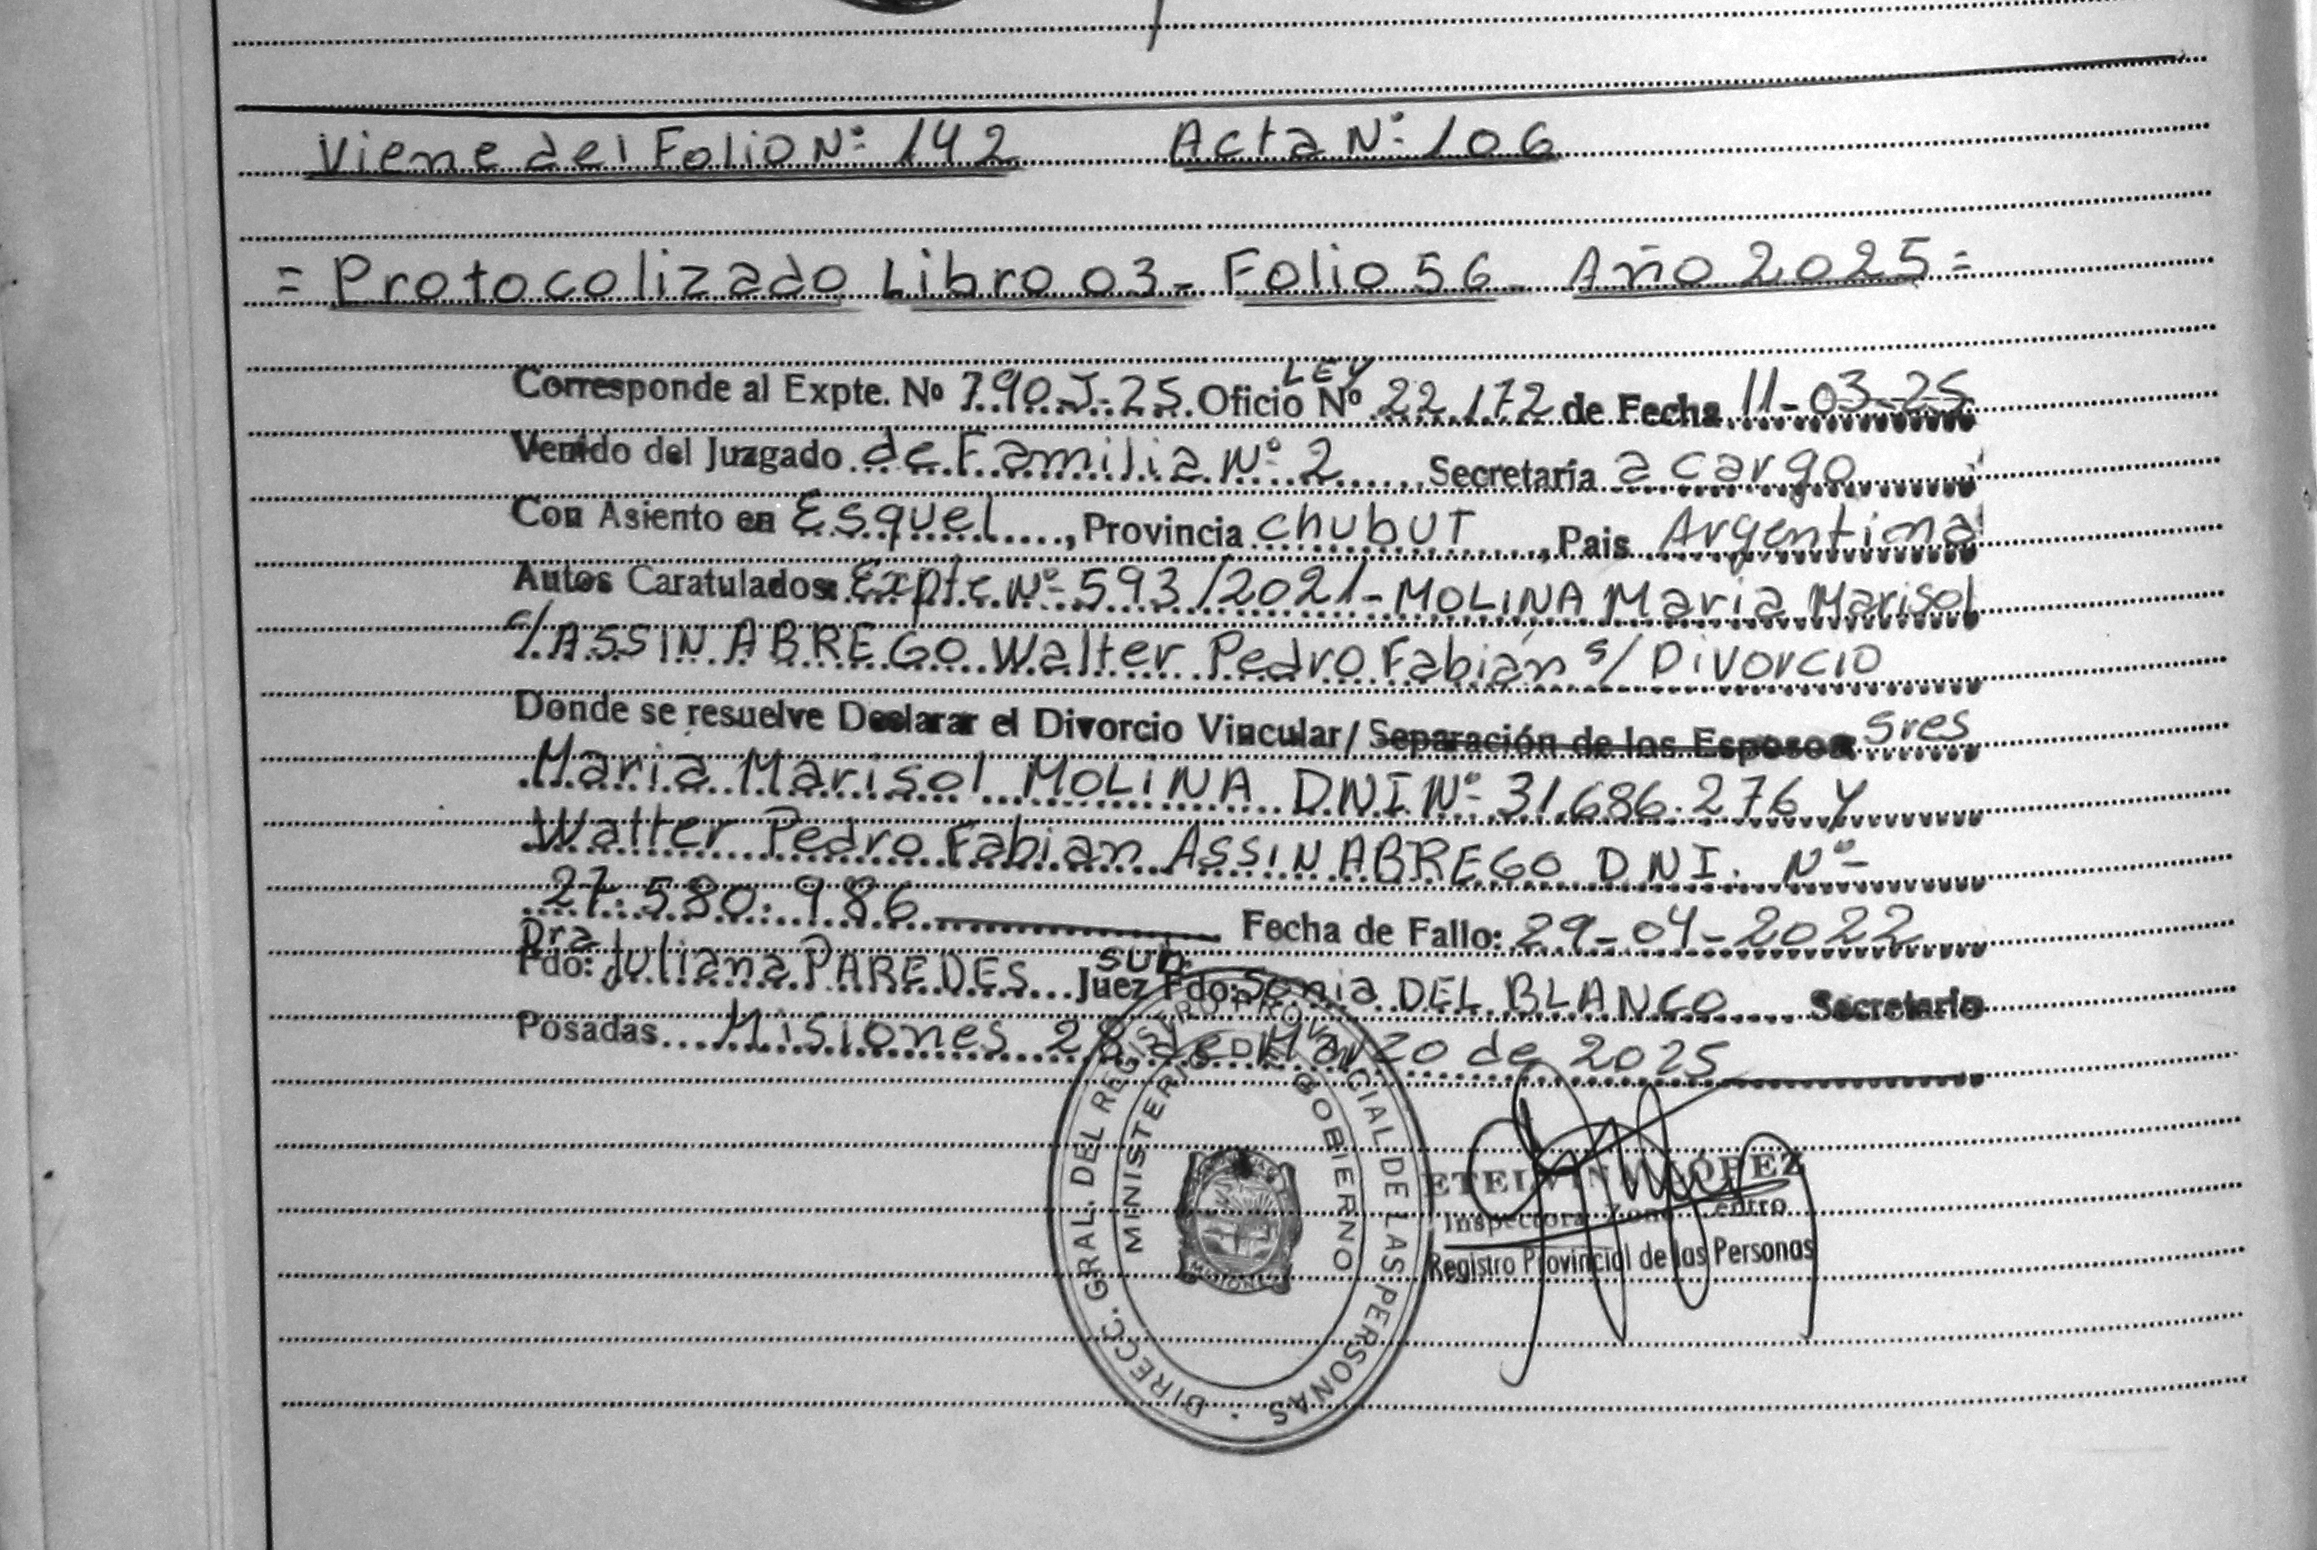 Viene del Folio Nº: 142 Acta Nº: 106
= Protocolizado Libro 03 - Folio 56 - Año 2025 =
LEY
Corresponde al Expte. Nº 790-J-25 Oficio Nº 22.172 de Fecha 11-03-25
Venido del Juzgado de Familia Nº 2 Secretaría a cargo
Con Asiento en Esquel, Provincia Chubut, Pais Argentina
Autos Caratulados: Expte Nº 593/2021 - MOLINA Maria Marisol
c/ ASSIN ABREGO Walter Pedro Fabián s/ Divorcio
Donde se resuelve Declarar el Divorcio Vincular / Separación de los Esposos Sres
Maria Marisol MOLINA DNI Nº 31.686.276 y
Walter Pedro Fabian ASSIN ABREGO DNI. Nº
27.580.986 Fecha de Fallo: 29-04-2022
Dra sub
Fdo: Juliana PAREDES Juez Fdo: Sonia DEL BLANCO Secretario
Posadas Misiones 28 de Marzo de 2025
DIRECC. GRAL. DEL REGISTRO PROVINCIAL DE LAS PERSONAS
MINISTERIO DE GOBIERNO
MISIONES
ETELVINA LÓPEZ
Inspectora Zona Centro
Registro Provincial de las Personas